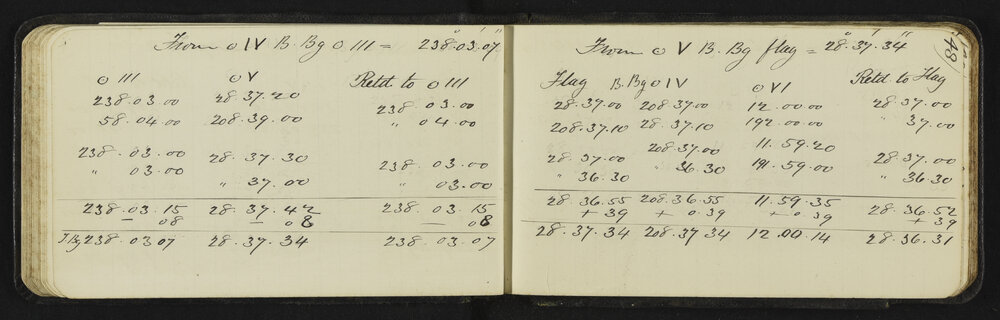 From ⊙ IV B. Bg ⊙ III = 238° 03' 07"
⊙ III ⊙ V Retd to ⊙ III
238.03.00 28.37.20 238.03.00
58.04.00 208.39.00 " 04.00
238.03.00 28.37.30 238.03.00
" 03.00 " 37.00 " 03.00
238.03.15 28.37.42 238.03.15
— 08 — 08 — 08
T Bg 238.03.07 28.37.34 238.03.07
48
From ⊙ V B. Bg flag = 28° 37' 34"
Flag B. Bg ⊙ IV ⊙ VI Retd to Flag
28.37.00 208.37.00 12.00.00 28.37.00
208.37.10 28.37.10 192.00.00 " 37.00
28.37.00 208.37.00 11.59.20 28.37.00
" 36.30 " 36.30 191.59.00 " 36.30
28.36.55 208.36.55 11.59.35 28.36.52
+ 39 + 0.39 + 0.39 + 39
28.37.34 208.37.34 12.00.14 28.36.31